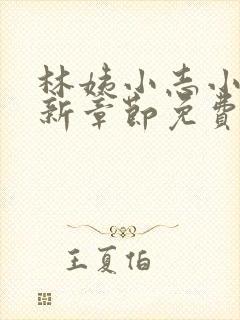 林姨小志小
新章節免費
王夏伯